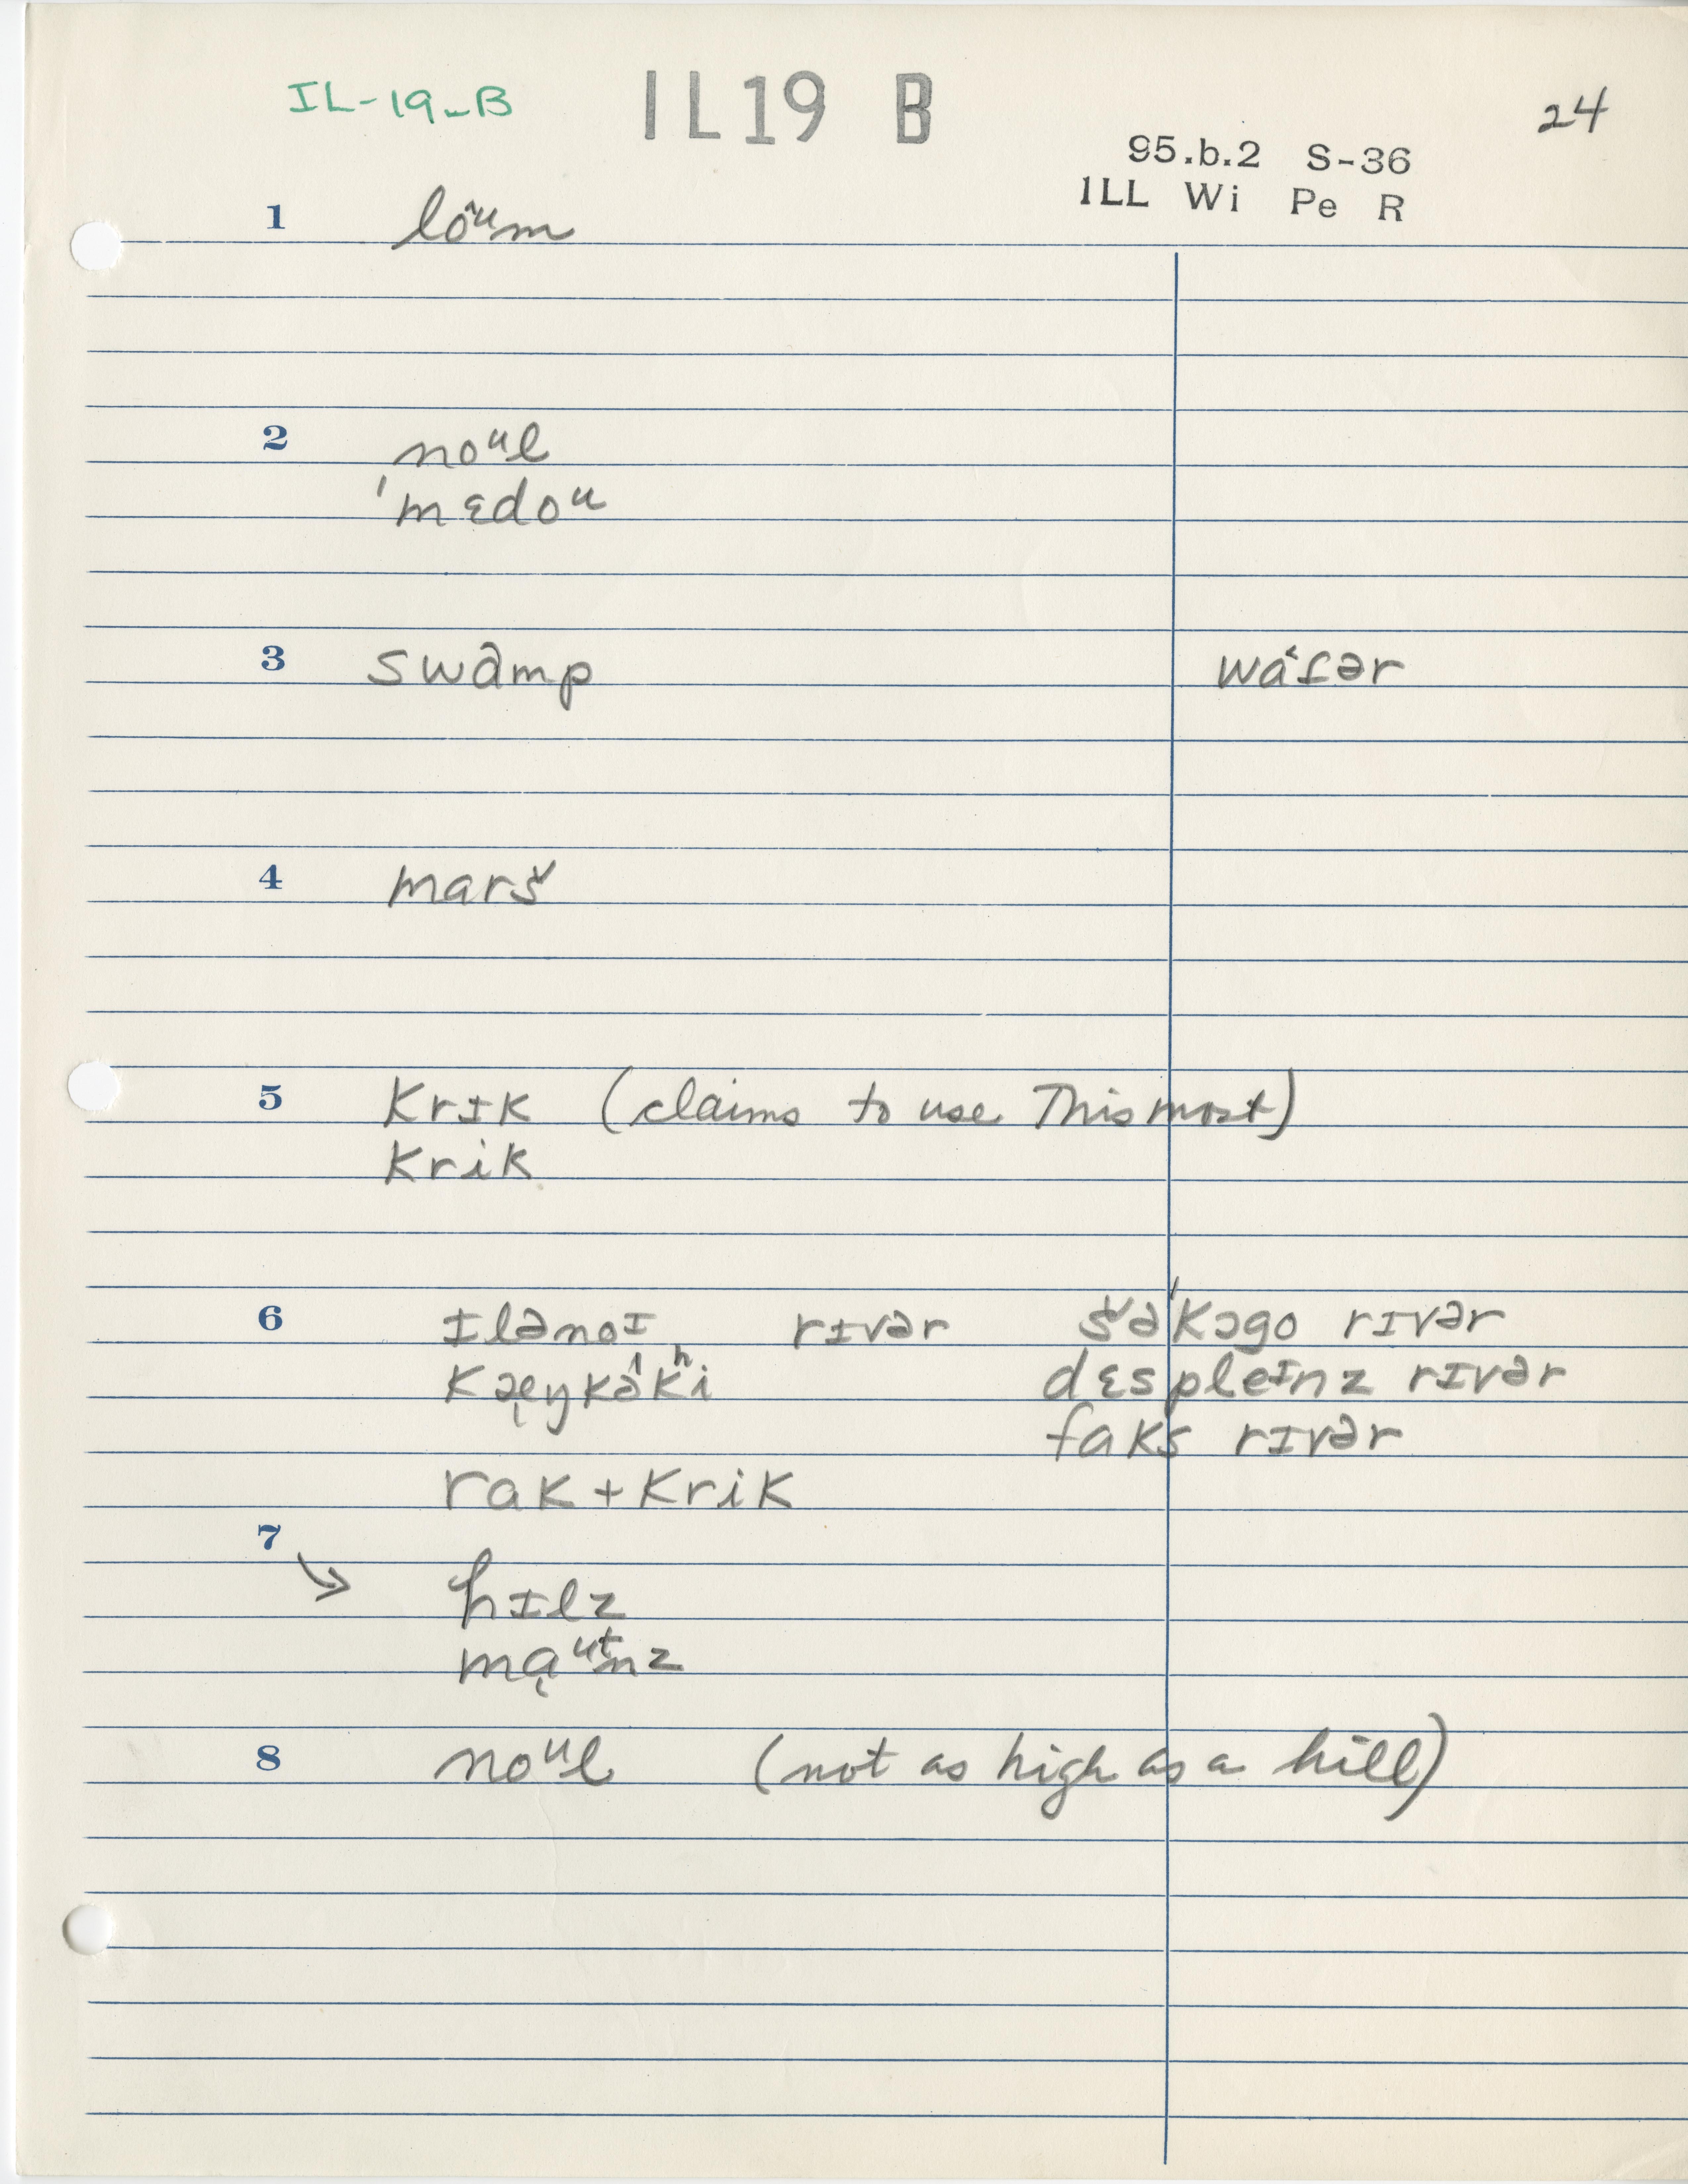 IL-19-B IL19 B 24
95.b.2 S-36
1LL Wi Pe R
1 lôᵘm
2 noᵘl
ˈmɛdoᵘ
3 swâmp wa˂ɾər
4 marš
5 krɪk (claims to use This most)
krik
6 ɪlənoɪ rɪvər šəˈkɔgo rɪvər
despleɪnz rɪvər
faks rɪvər
rak+krik
7 hɪlz
8 noᵘl (not as high as a hill)